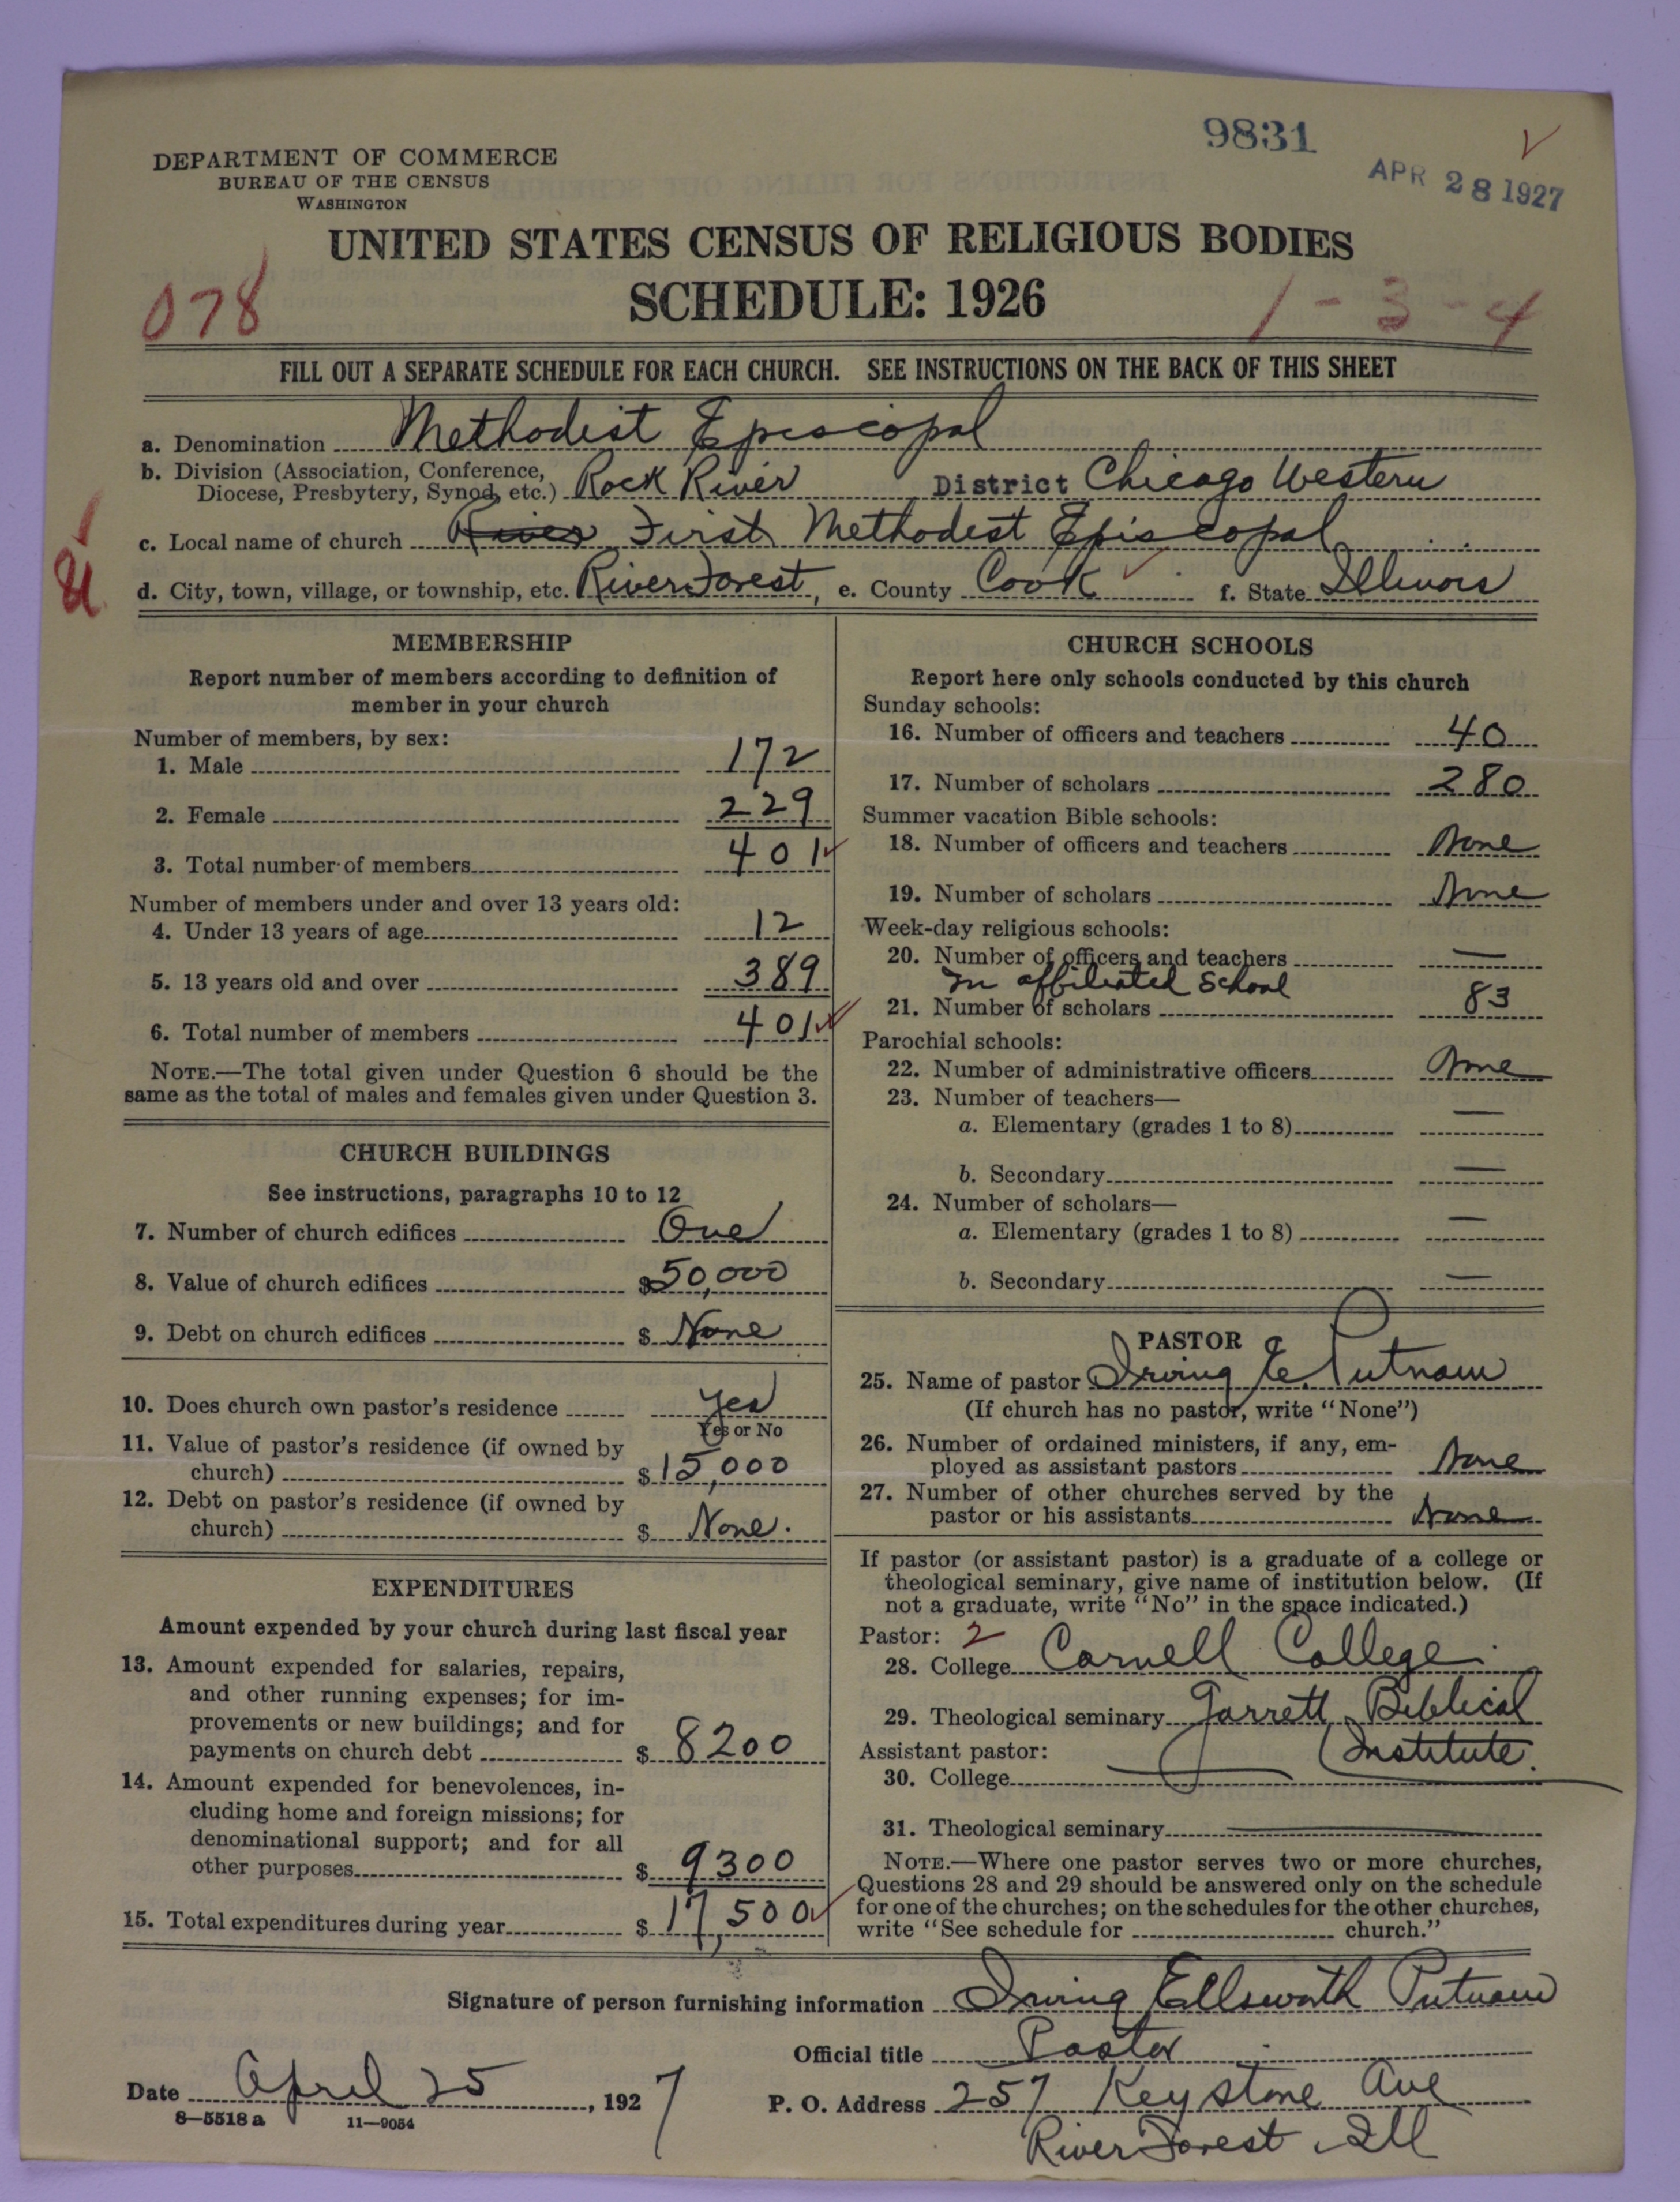 9831
APR 28 1927
DEPARTMENT OF COMMERCE
BUREAU OF THE CENSUS
WASHINGTON
UNITED STATES CENSUS OF RELIGIOUS BODIES
SCHEDULE: 1926
078
1-3-4
FILL OUT A SEPARATE SCHEDULE FOR EACH CHURCH. SEE INSTRUCTIONS ON THE BACK OF THIS SHEET
a. Denomination Methodist Episcopal
b. Division (Association, Conference,
Diocese, Presbytery, Synod, etc.) Rock River District Chicago Western
c. Local name of church River First Methodist Episcopal
d. City, town, village, or township, etc. River Forest, e. County Cook f. State Illinois
MEMBERSHIP
Report number of members according to definition of
member in your church
Number of members, by sex:
1. Male 172
2. Female 229
3. Total number of members 401
Number of members under and over 13 years old:
4. Under 13 years of age 12
5. 13 years old and over 389
6. Total number of members 401
NOTE.—The total given under Question 6 should be the
same as the total of males and females given under Question 3.
CHURCH BUILDINGS
See instructions, paragraphs 10 to 12
7. Number of church edifices One
8. Value of church edifices $50,000
9. Debt on church edifices $ None
10. Does church own pastor's residence Yes
Yes or No
11. Value of pastor's residence (if owned by
church) $15,000
12. Debt on pastor's residence (if owned by
church) $ None.
EXPENDITURES
Amount expended by your church during last fiscal year
13. Amount expended for salaries, repairs,
and other running expenses; for im-
provements or new buildings; and for
payments on church debt $ 8200
14. Amount expended for benevolences, in-
cluding home and foreign missions; for
denominational support; and for all
other purposes $ 9300
15. Total expenditures during year $ 17,500
CHURCH SCHOOLS
Report here only schools conducted by this church
Sunday schools:
16. Number of officers and teachers 40
17. Number of scholars 280
Summer vacation Bible schools:
18. Number of officers and teachers None
19. Number of scholars None
Week-day religious schools:
20. Number of officers and teachers —
In affiliated School
21. Number of scholars 83
Parochial schools:
22. Number of administrative officers None
23. Number of teachers—
a. Elementary (grades 1 to 8) —
b. Secondary —
24. Number of scholars—
a. Elementary (grades 1 to 8) —
b. Secondary —
PASTOR
25. Name of pastor Irving E. Putnam
(If church has no pastor, write "None")
26. Number of ordained ministers, if any, em-
ployed as assistant pastors None
27. Number of other churches served by the
pastor or his assistants None
If pastor (or assistant pastor) is a graduate of a college or
theological seminary, give name of institution below. (If
not a graduate, write "No" in the space indicated.)
Pastor: 2
28. College Cornell College
29. Theological seminary Garrett Biblical
Assistant pastor: Institute.
30. College
31. Theological seminary
NOTE.—Where one pastor serves two or more churches,
Questions 28 and 29 should be answered only on the schedule
for one of the churches; on the schedules for the other churches,
write "See schedule for church."
Signature of person furnishing information Irving Ellsworth Putnam
Official title Pastor
Date April 25, 1927
P. O. Address 257 Keystone Ave
River Forest, Ill
8—5518 a 11—9054